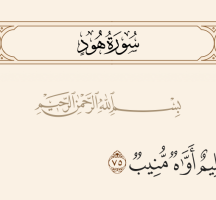 سُورَةُ هُودٍ
بِسْمِ اللَّهِ الرَّحْمَٰنِ الرَّحِيمِ
أَوَّاهٌ مُّنِيبٌ ٧٥